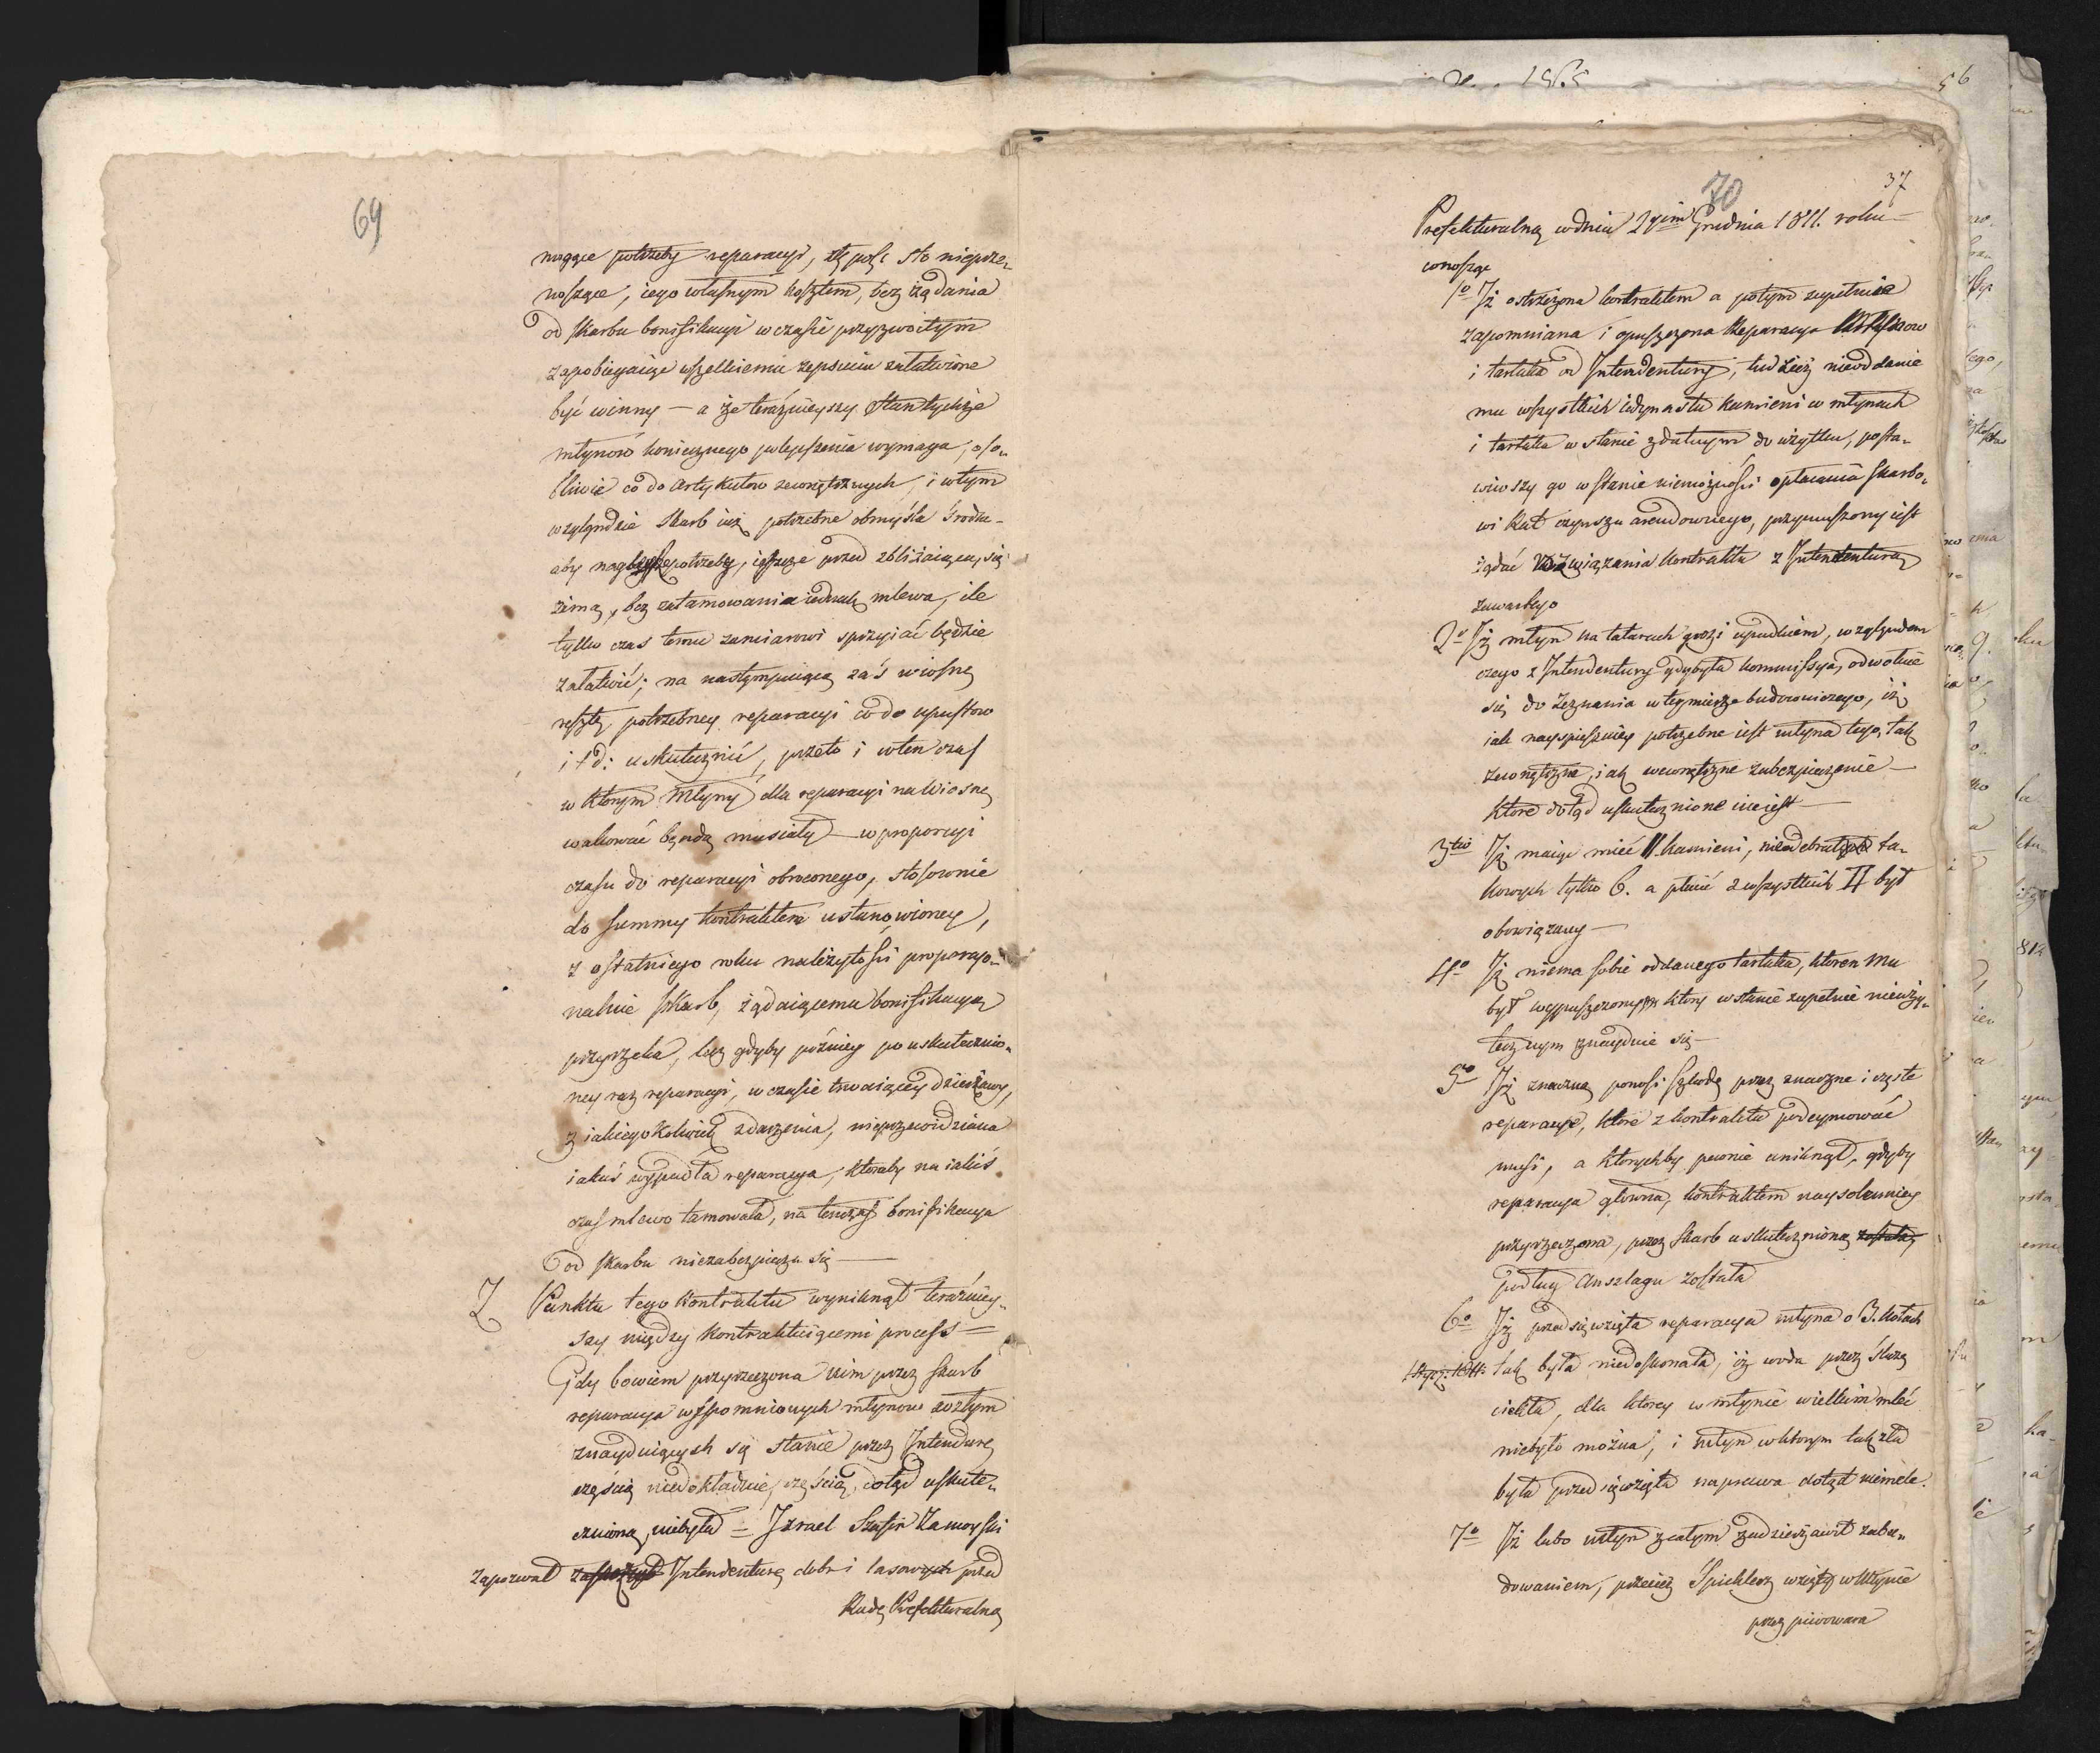 69
nagące potrzeby reparacyi, złp. sto nieprze-
noszące, iego własnym kosztem, bez żądania
od Skarbu bonifikacyi w czasie przyzwoitym
zapobiegaiąc wszelkiemu zepsuciu załatwione
być winny — a że teraźnieyszy Stan tychże
młynów koniecznego polepszenia wymaga, oso-
bliwie co do Artykułow zewnętrznych, i wtym
względzie Skarb iuż potrzebne obmyśla środki
aby nagłe potrzeby, ieszcze przed zbliżaiącą się
zimą, bez zatamowania iednak mlewa, ile
tylko czas temu zamiarowi sprzyiać będzie
załatwić; na następuiącą zaś wiosnę
resztę potrzebney reparacyi co do upustow
i t d: uskutecznić, przeto i wten czas
w ktorym Młyny dla reparacyi na Wiosnę
wakować będą musiały — w proporcyi
czasu do reparacyi obroconego, stosownie
do Summy kontraktem ustanowioney,
z ostatniego roku należytości proporcyo-
nalnie Skarb, żądaiącemu bonifikacyą
przyrzeka, lecz gdyby poźniey po uskutecznio-
ney raz reparacyi, w czasie trwaiącey dzierżawy,
z iakiegokolwiek zdarzenia, nieprzewidziana
iakaś wypadła reparacya, ktoraby na iakiś
czas mlewo tamowała, na tenczas bonifikacya
od Skarbu niezabezpiecza się —
Z Punktu tego Kontraktu wyniknął teraźniey-
szy między Kontraktuiącemi process —
Gdy bowiem przyrzeczona nim przez Skarb
reparacya wspomnionych młynow w złym
znayduiących się stanie przez Intendurę
częścią niedokładnie, częścią dotąd uskute-
cznioną niebyła — Izrael Szafir Zamoyski
zapozwał Intendenturę dobr i lasow przed
Radę Prefekturalną
70
37
Prefekturalną w dniu 24im Grudnia 1811. roku —
wnosząc
1o Iż ostrzeżona kontraktem a potym zupełnie
zapomniana i opuszczona Reparacya
i tartaka od Intendentury, tudzież nieoddanie
mu wszystkich iedynastu kamieni w młynach
i tartaka w stanie zdatnym do użytku, posta-
wiwszy go w stanie niemożności opłacania Skarbo-
wi Rat czynszu arendownego, przymuszony iest
żądać rozwiązania kontraktu z Intendenturą
zawartego
2o Iż młyn na tatarach grozi upadkiem, względem
czego z Intendentury gdy była kommissya, odwołuie
się do zeznania w tey mierze budowniczego, iż
iak nayspieszniey potrzebne iest młyna tego, tak
zewnętrzne, iak wewnętrzne zabezpieczenie —
Ktore dotąd uskutecznione nie iest —
3tio Iż maiąc mieć 11 kamieni, nieodebrał ta-
kowych tylko 6. a płacić z wszystkich 11 był
obowiązany —
4o Iż niema sobie oddanego tartaka, ktoren mu
był wypuszczony, ktory w stanie zupełnie nieuży-
tecznym znayduie się —
5o Iż znaczną ponosi szkodę przez znaczne i częste
reparacye, ktore z kontraktu podeymować
musi, a ktorychby pewnie uniknął, gdyby
reparacya głowna, kontraktem naysolenniey
przyrzeczona, przez Skarb uskuteczniona została
podług Anszlagu została
6o Iż przedsięwzięta reparacya młyna o 3. kołach
tak była niedoskonała, iż woda przez śluzę
ciekła, dla ktorey w młynie wielkim mleć
niebyło można, i młyn w ktorym tak zła
była przedsięwzięta naprawa dotąd niemele.
7o Iż lubo młyn z całym zadzierżawił zabu-
dowaniem, przecież Spichlerz wzięty w Młynie
przez piwowara